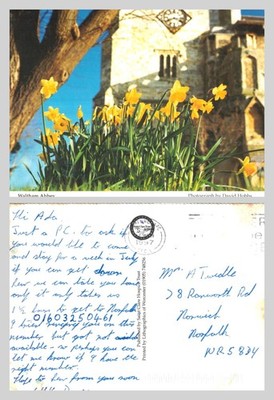 Waltham Abbey
Photograph by David Hobby
Hi Ada
Just a P.C. to ask if
you would like to come
and stay for a week in July
if you can get down
here we can take you home
only it only takes us
1½ hours to get to Norfolk
01603250461
I tried ringing you on this
number but got not
available so perhaps you can
let me know if I have the
right number.
Hope to hear from you soon
Printed by Lithographics of Worcester (01905)
Mrs A Tweedle
78 Ranworth Rd
Norwich
Norfolk